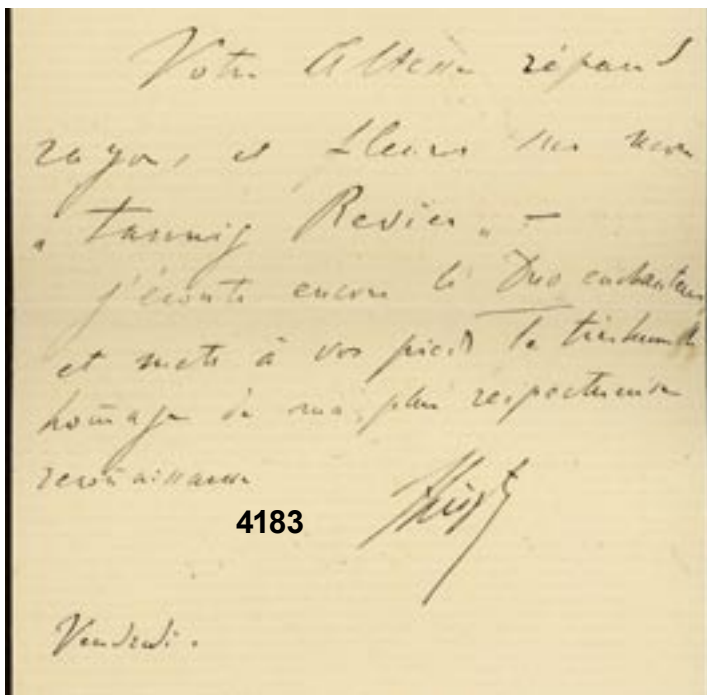 Votre Altesse répand
rayons et fleurs sur mon
„ Revier „ –
j'écoute encore le Duo enchanteur,
et mets à vos pieds le très humble
hommage de ma plus respectueuse
reconnaissance
4183
Vendredi.